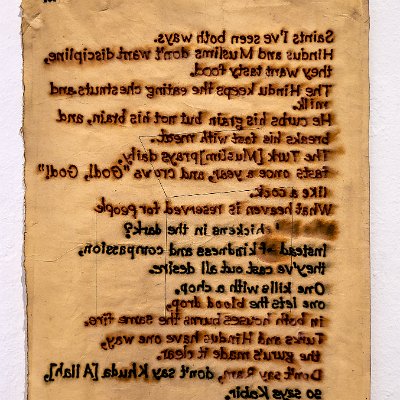 Saints I've seen both ways.
Hindus and Muslims don't want discipline,
they want tasty food.
The Hindu keeps the eating chestnuts and
milk.
He curbs his grain but not his brain, and
breaks his fast with meat.
The Turk [Muslim] prays daily,
fasts once a year, and crows "God!, God!"
like a cock.
What heaven is reserved for people
chickens in the dark?
Instead of kindness and compassion,
they've cast out all desire.
One kills with a chop,
one lets the blood drop,
in both houses burns the same fire.
Turks and Hindus have one way,
the guru's made it clear.
Don't say Ram, don't say Khuda [Allah],
so says Kabir.